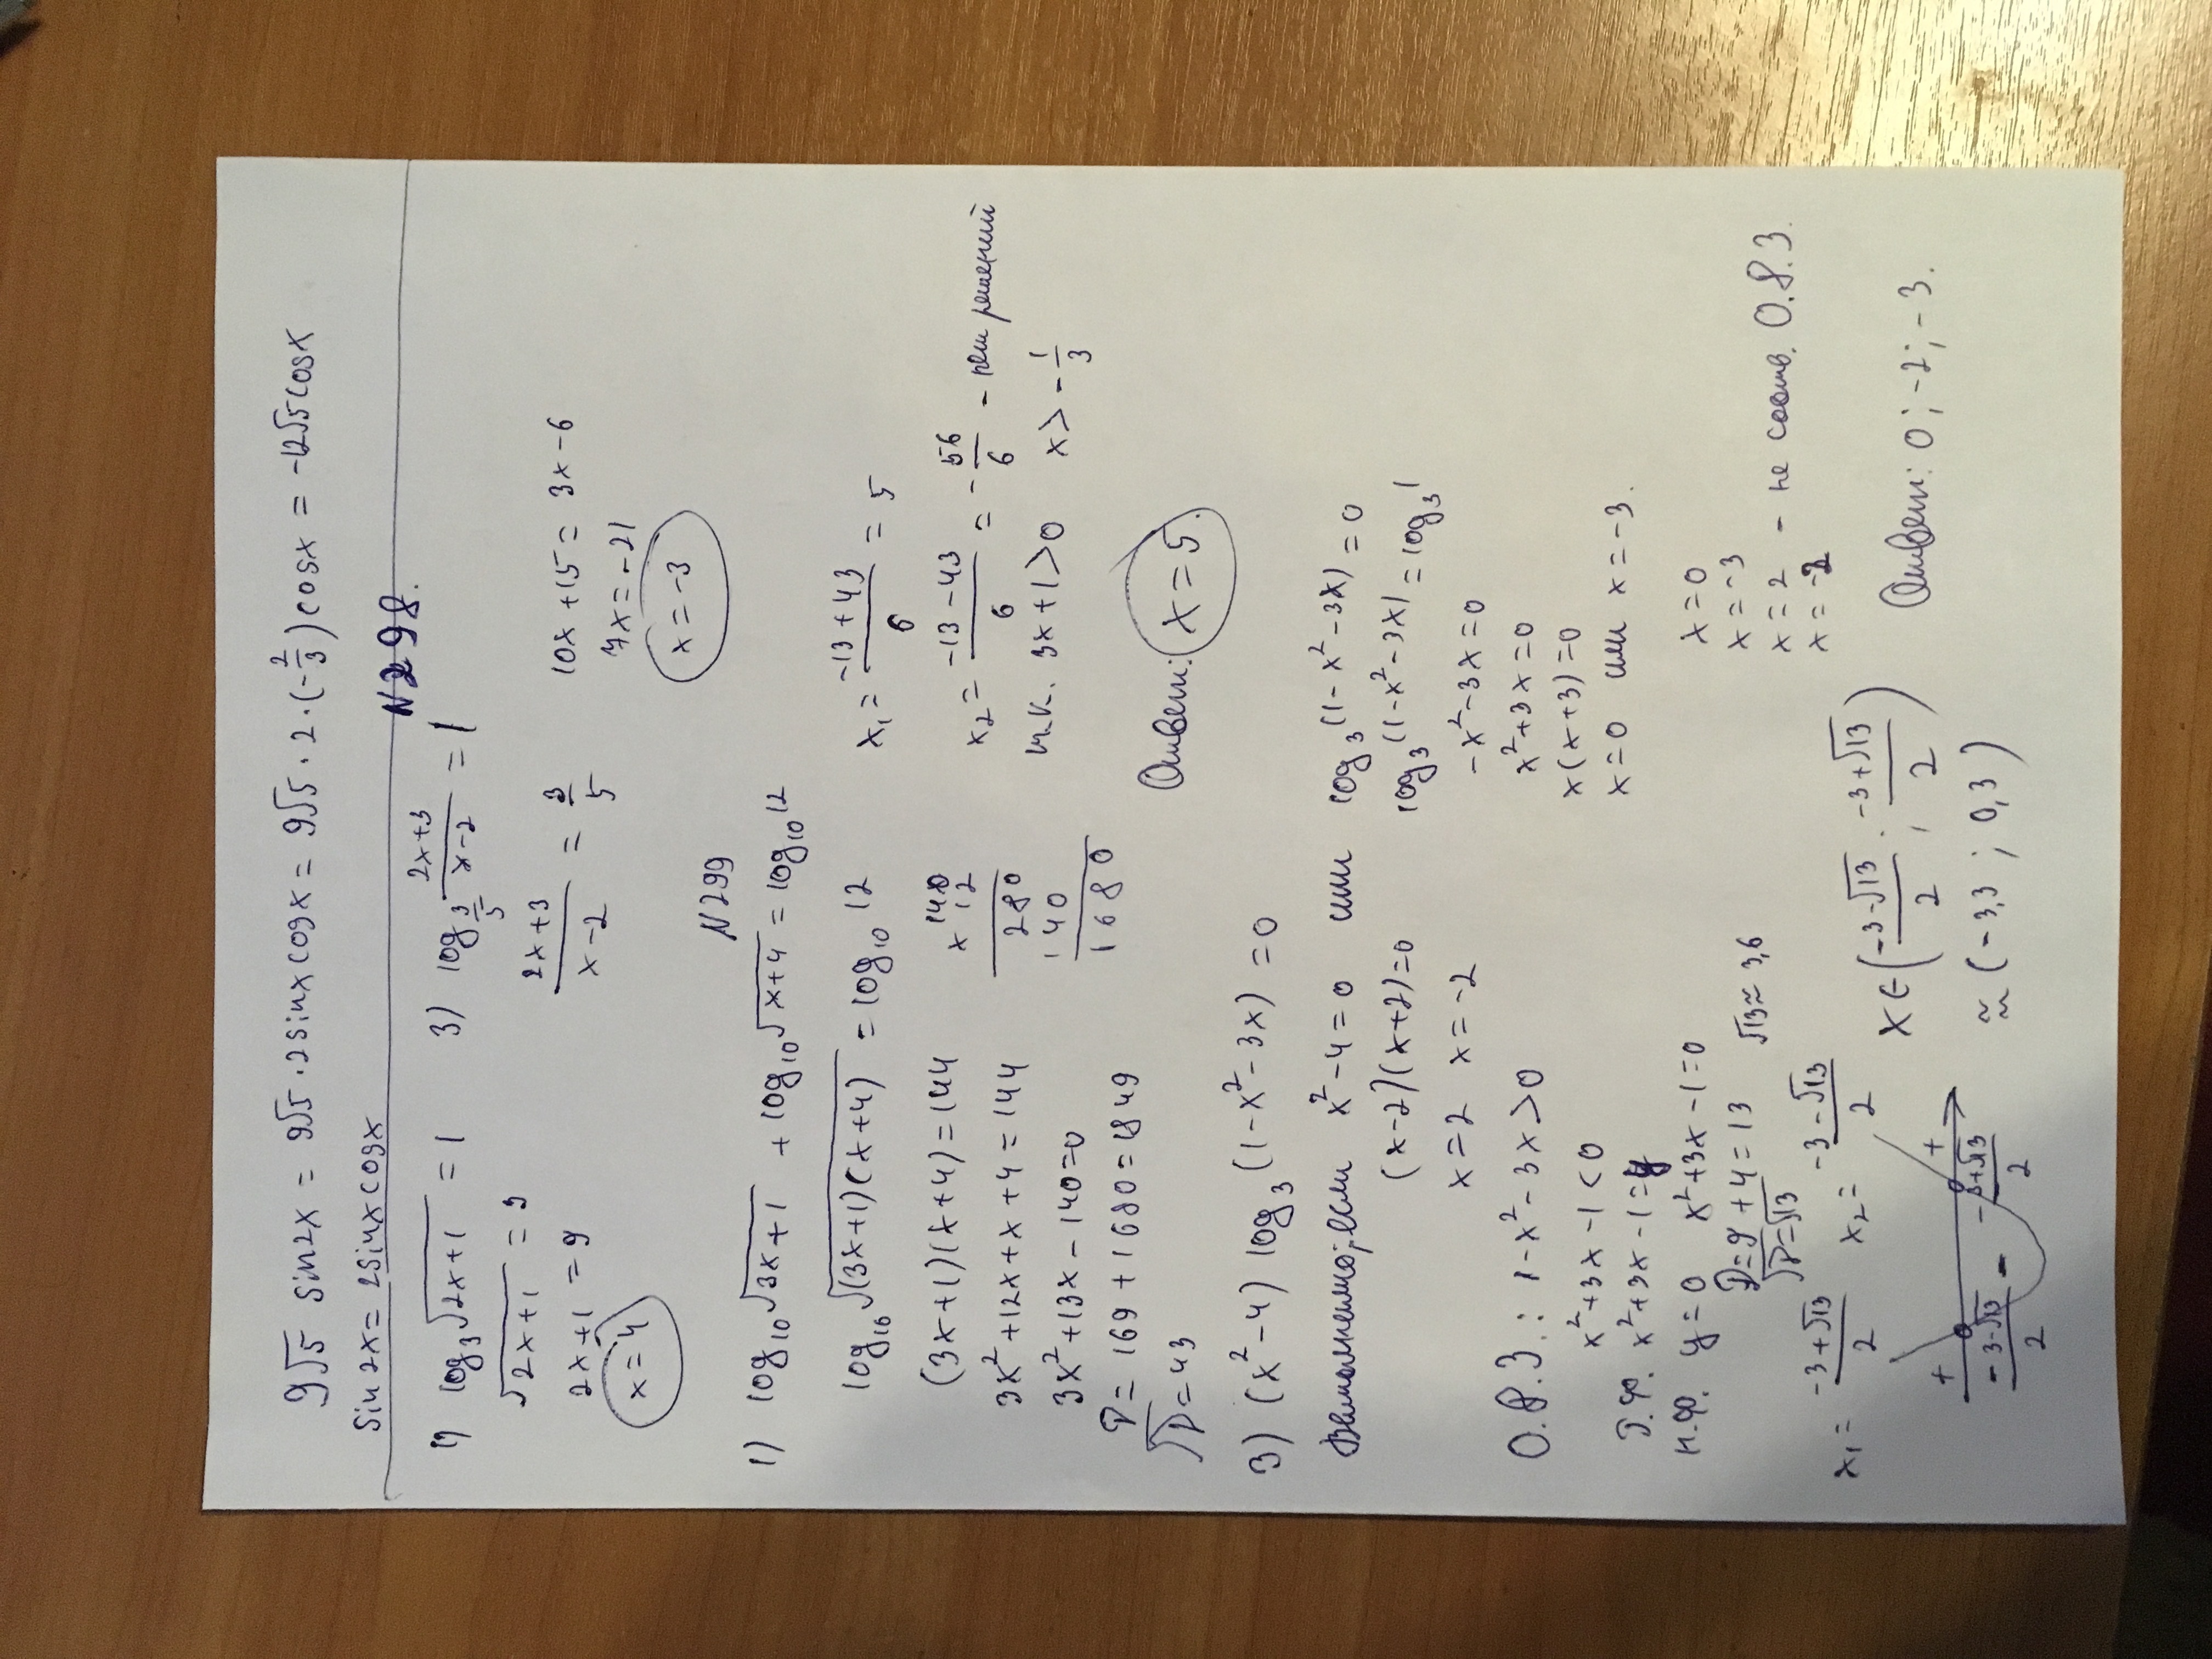 9√5 sin2x = 9√5 · 2sinx cosx = 9√5 · 2 · (-2/3) cosx = -12√5 cosx
sin2x = 2sinx cosx
N298.
1) log₃√(2x+1) = 1
√(2x+1) = 3
2x+1 = 9
x = 4
3) log_(3/5) (2x+3)/(x-2) = 1
(2x+3)/(x-2) = 3/5
10x + 15 = 3x - 6
7x = -21
x = -3
N299
1) log₁₀√(3x+1) + log₁₀√(x+4) = log₁₀12
log₁₀√((3x+1)(x+4)) = log₁₀12
(3x+1)(x+4) = 144
3x²+12x+x+4 = 144
3x²+13x-140=0
D = 169 + 1680 = 1849
√D = 43
x 140
12
280
140
1680
x₁ = (-13+43)/6 = 5
x₂ = (-13-43)/6 = -56/6 - нет решений
т.к. 3x+1>0 x > -1/3
Ответ: x = 5.
3) (x²-4) log₃(1-x²-3x) = 0
Выполнимо, если x²-4=0 или log₃(1-x²-3x) = 0
(x-2)(x+2)=0
x=2 x=-2
log₃(1-x²-3x) = log₃1
-x²-3x=0
x²+3x=0
x(x+3)=0
x=0 или x=-3.
О.Д.З.: 1-x²-3x>0
x²+3x-1<0
x²+3x-1=y
н.ф. y=0 x²+3x-1=0
D=9+4=13
√D=√13
√13≈3,6
x₁ = (-3+√13)/2 x₂ = (-3-√13)/2
+ - +
(-3-√13)/2 (-3+√13)/2
x ∈ ((-3-√13)/2 ; (-3+√13)/2)
≈ (-3,3 ; 0,3)
x=0
x=-3
x=2 - не соотв. О.Д.З.
x=-2
Ответ: 0; -2; -3.